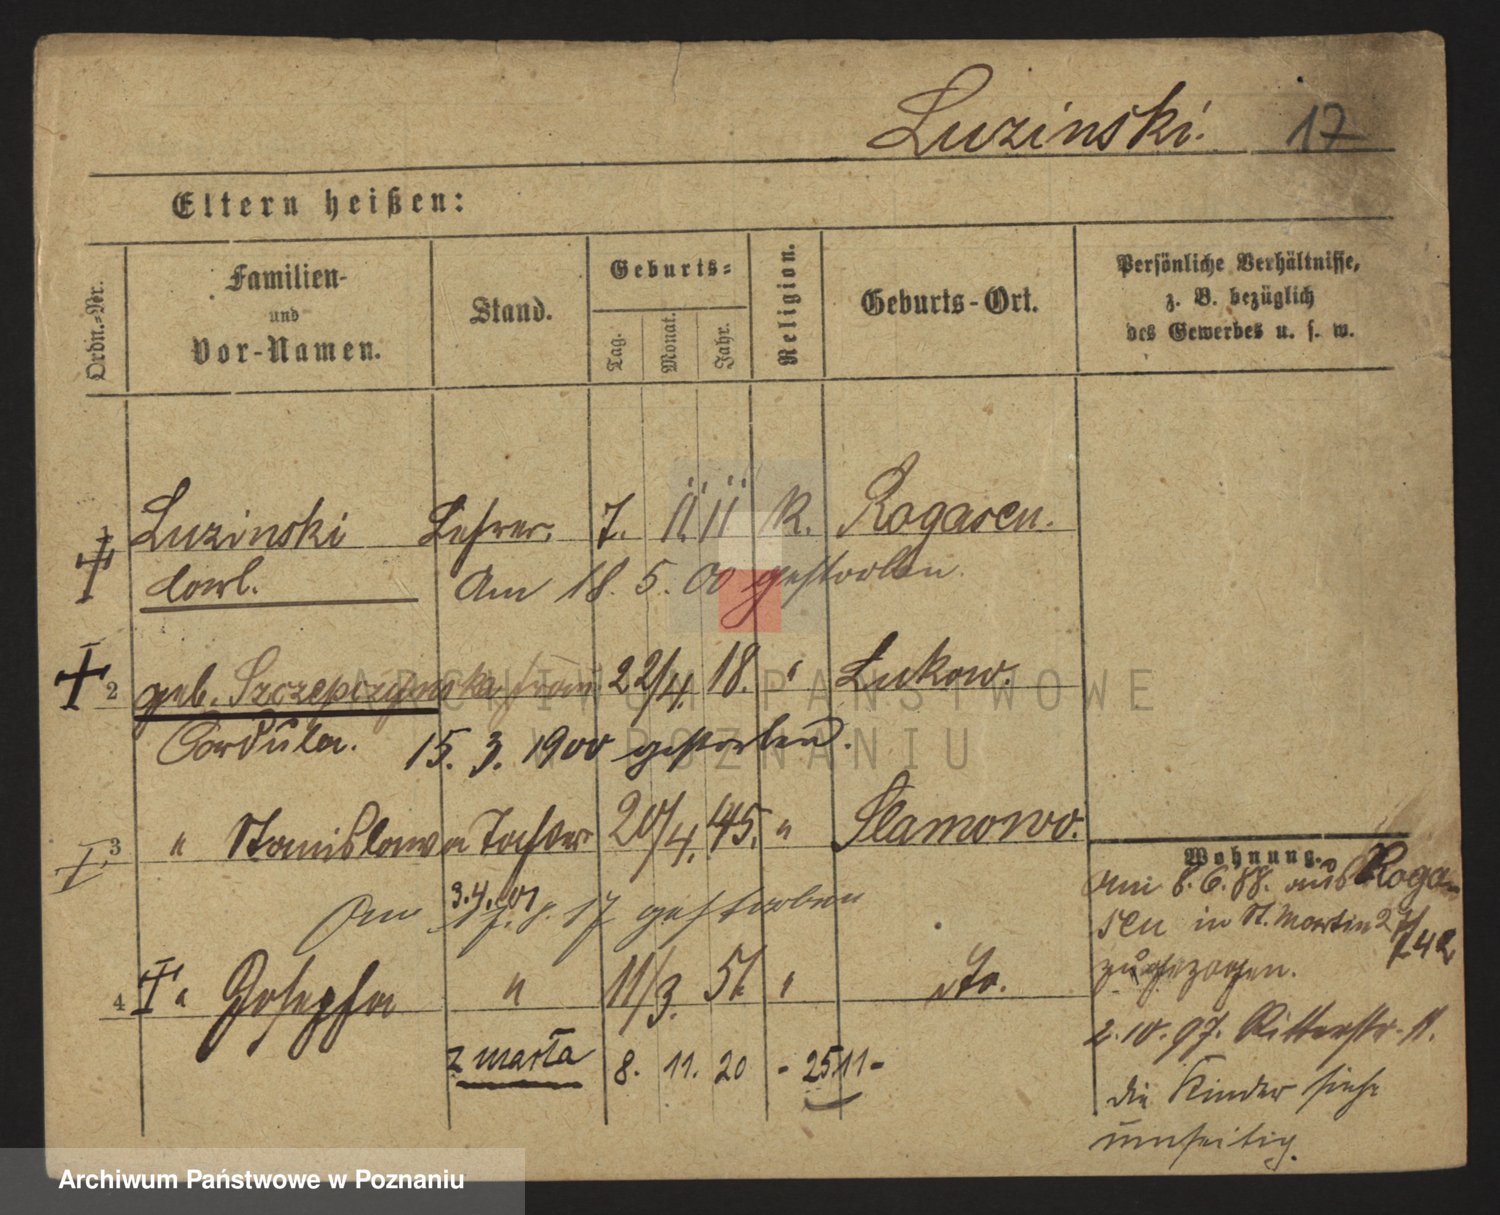 Luzinski. 17
Eltern heißen:
Ordn.-Nr.
Familien-
und
Vor-Namen.
Stand.
Geburts-
Tag.
Monat.
Jahr.
Religion.
Geburts-Ort.
Persönliche Verhältnisse,
z. B. bezüglich
des Gewerbes u. s. w.
1 Luzinski Lehrer. 7. 11 11 K. Rogasen.
Carl. Am 18. 5. 00 gestorben.
2 geb. Szczepczynska Frau 22/4. 18. " Lukow.
Cordula. 15. 3. 1900 gestorben.
3 " Stanislawa Tochter 20/4. 45. " Slamowo.
3.4.01
Am 17. 8. 17 gestorben
4 " Josepha " 11/3. 51. " dto.
zmarła 8. 11. 20 - 2511-
Wohnung.
Am 8. 6. 88. aus Roga-
sen in St. Martin 27/742
zugezogen.
2. 10. 97. Ritterstr. 11.
die Kinder siehe
umseitig.
ARCHIWUM PAŃSTWOWE
W POZNANIU
Archiwum Państwowe w Poznaniu